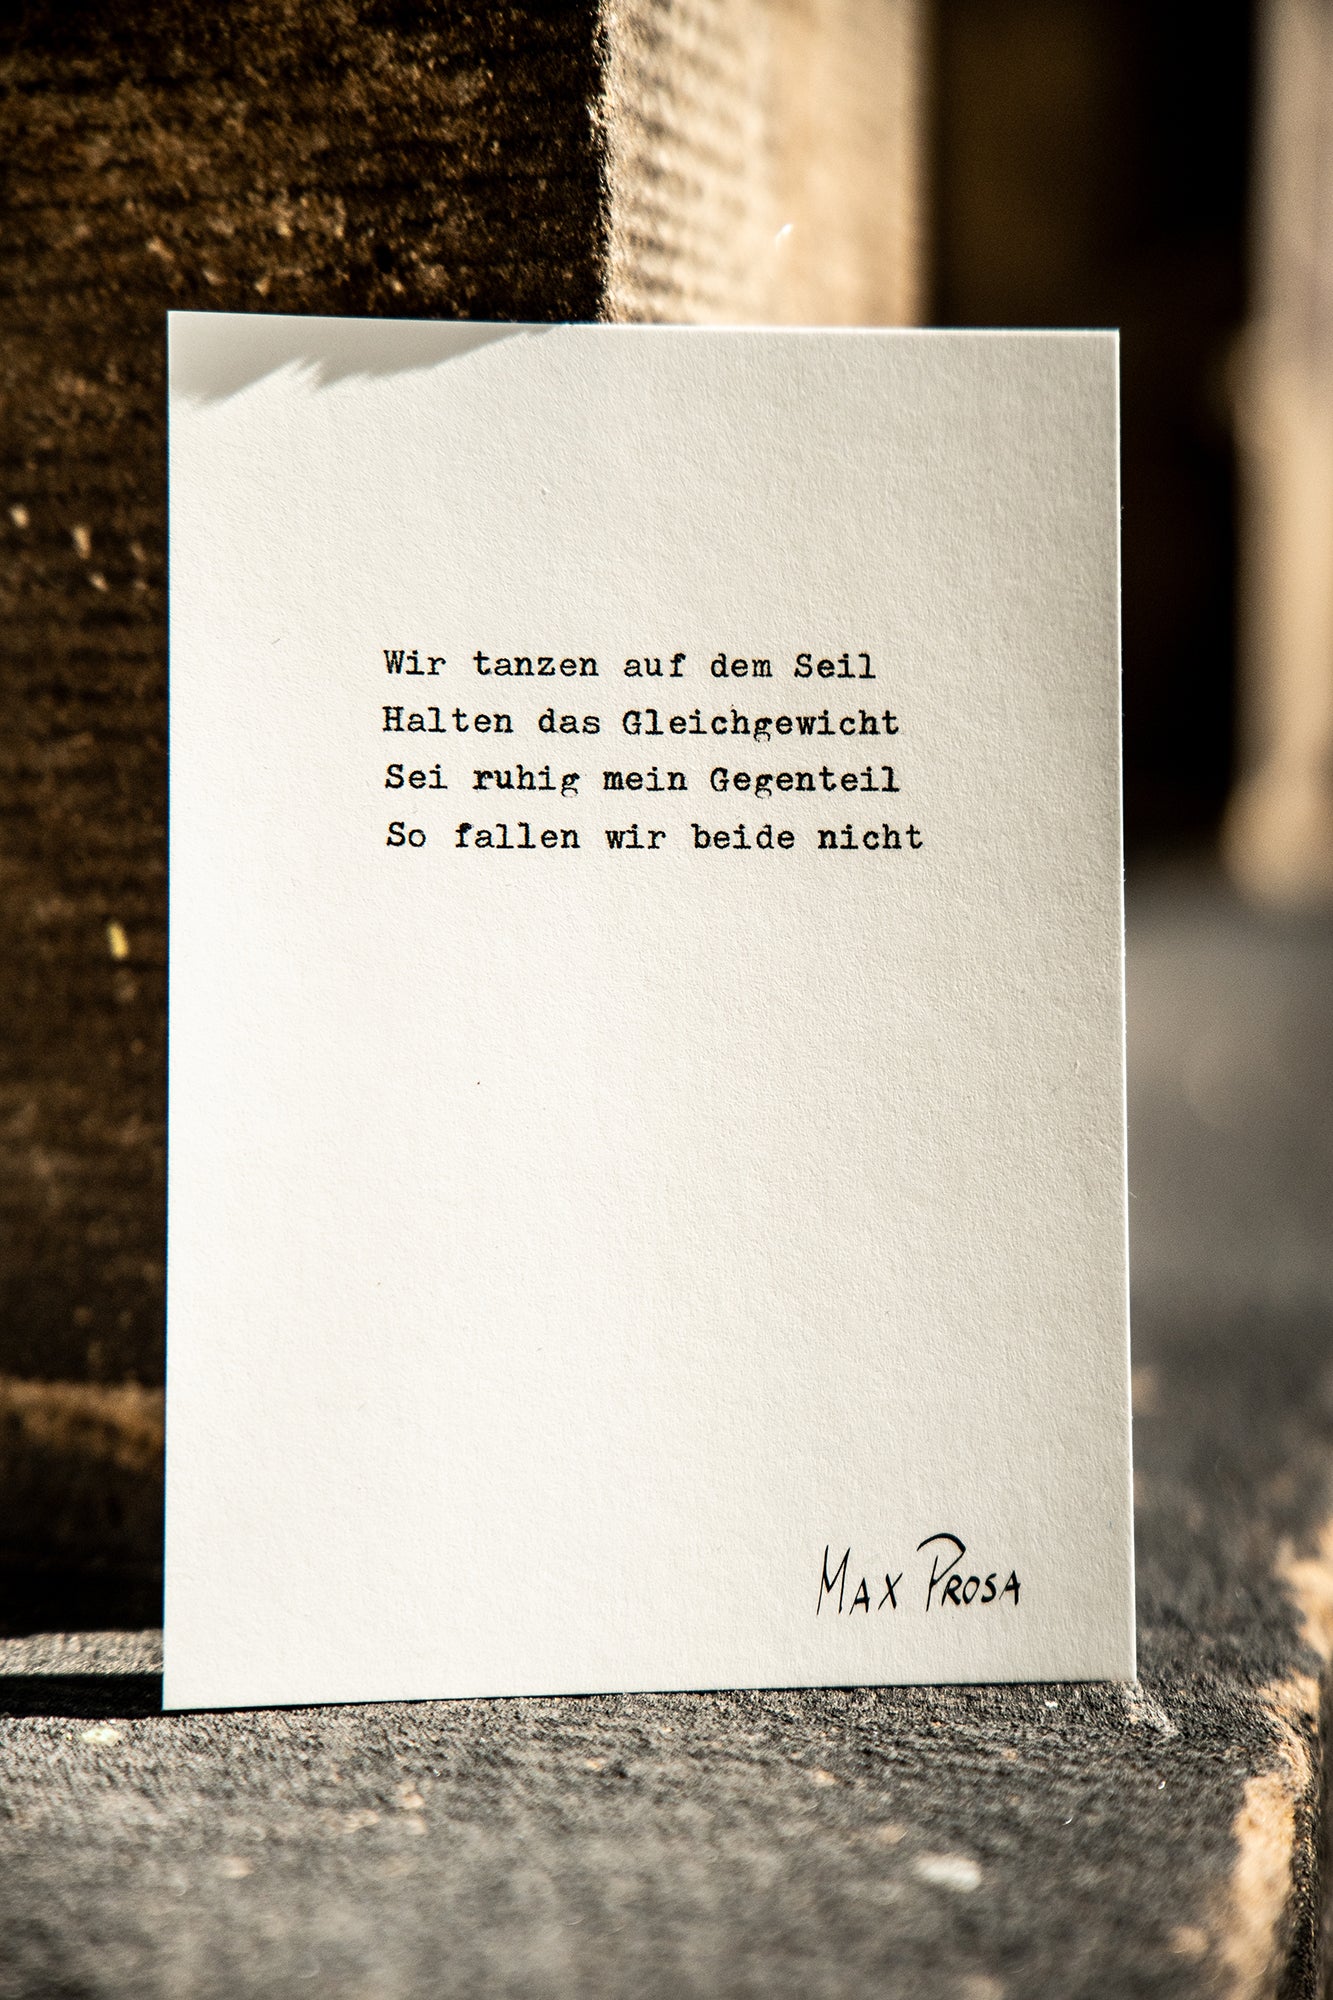 Wir tanzen auf dem Seil
Halten das Gleichgewicht
Sei ruhig mein Gegenteil
So fallen wir beide nicht
Max Prosa